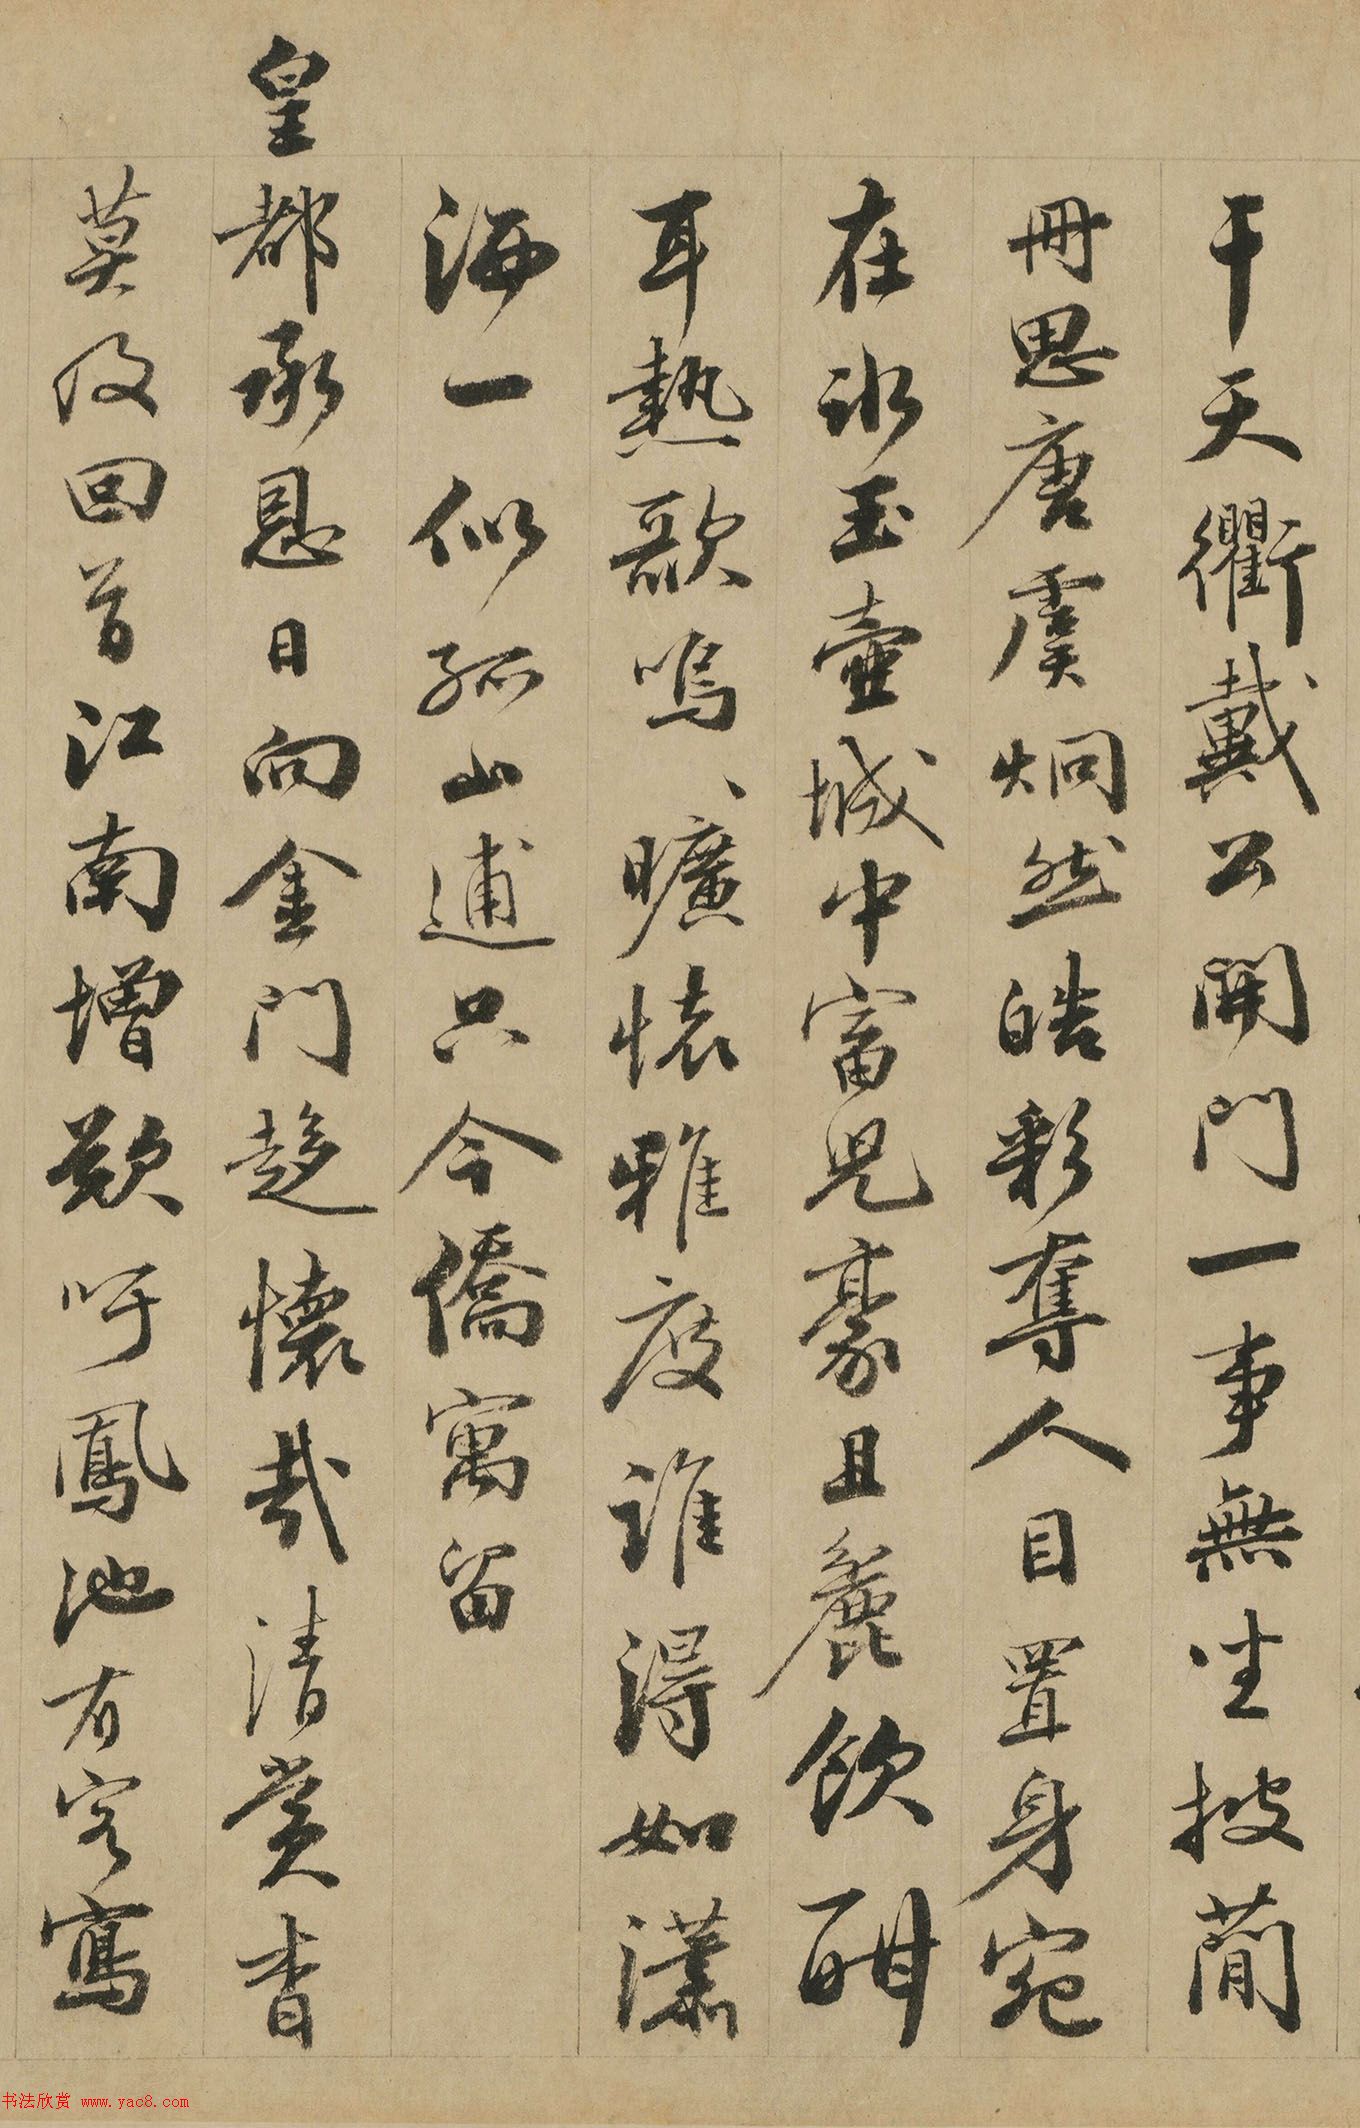 干天衢戴公開門一事無坐披蕳
冊思唐虞炯然皓彩奪人目置身宛
在冰玉壺城中富児豪且麄飲酣
耳熱歌嗚、曠懐雅度誰得如瀟
洒一似孤山逋只今僑寓留
皇都承恩日向金門趍懷哉清賞杳
莫及回首江南增歎吁鳳池有客寫
书法欣赏 www.yac8.com